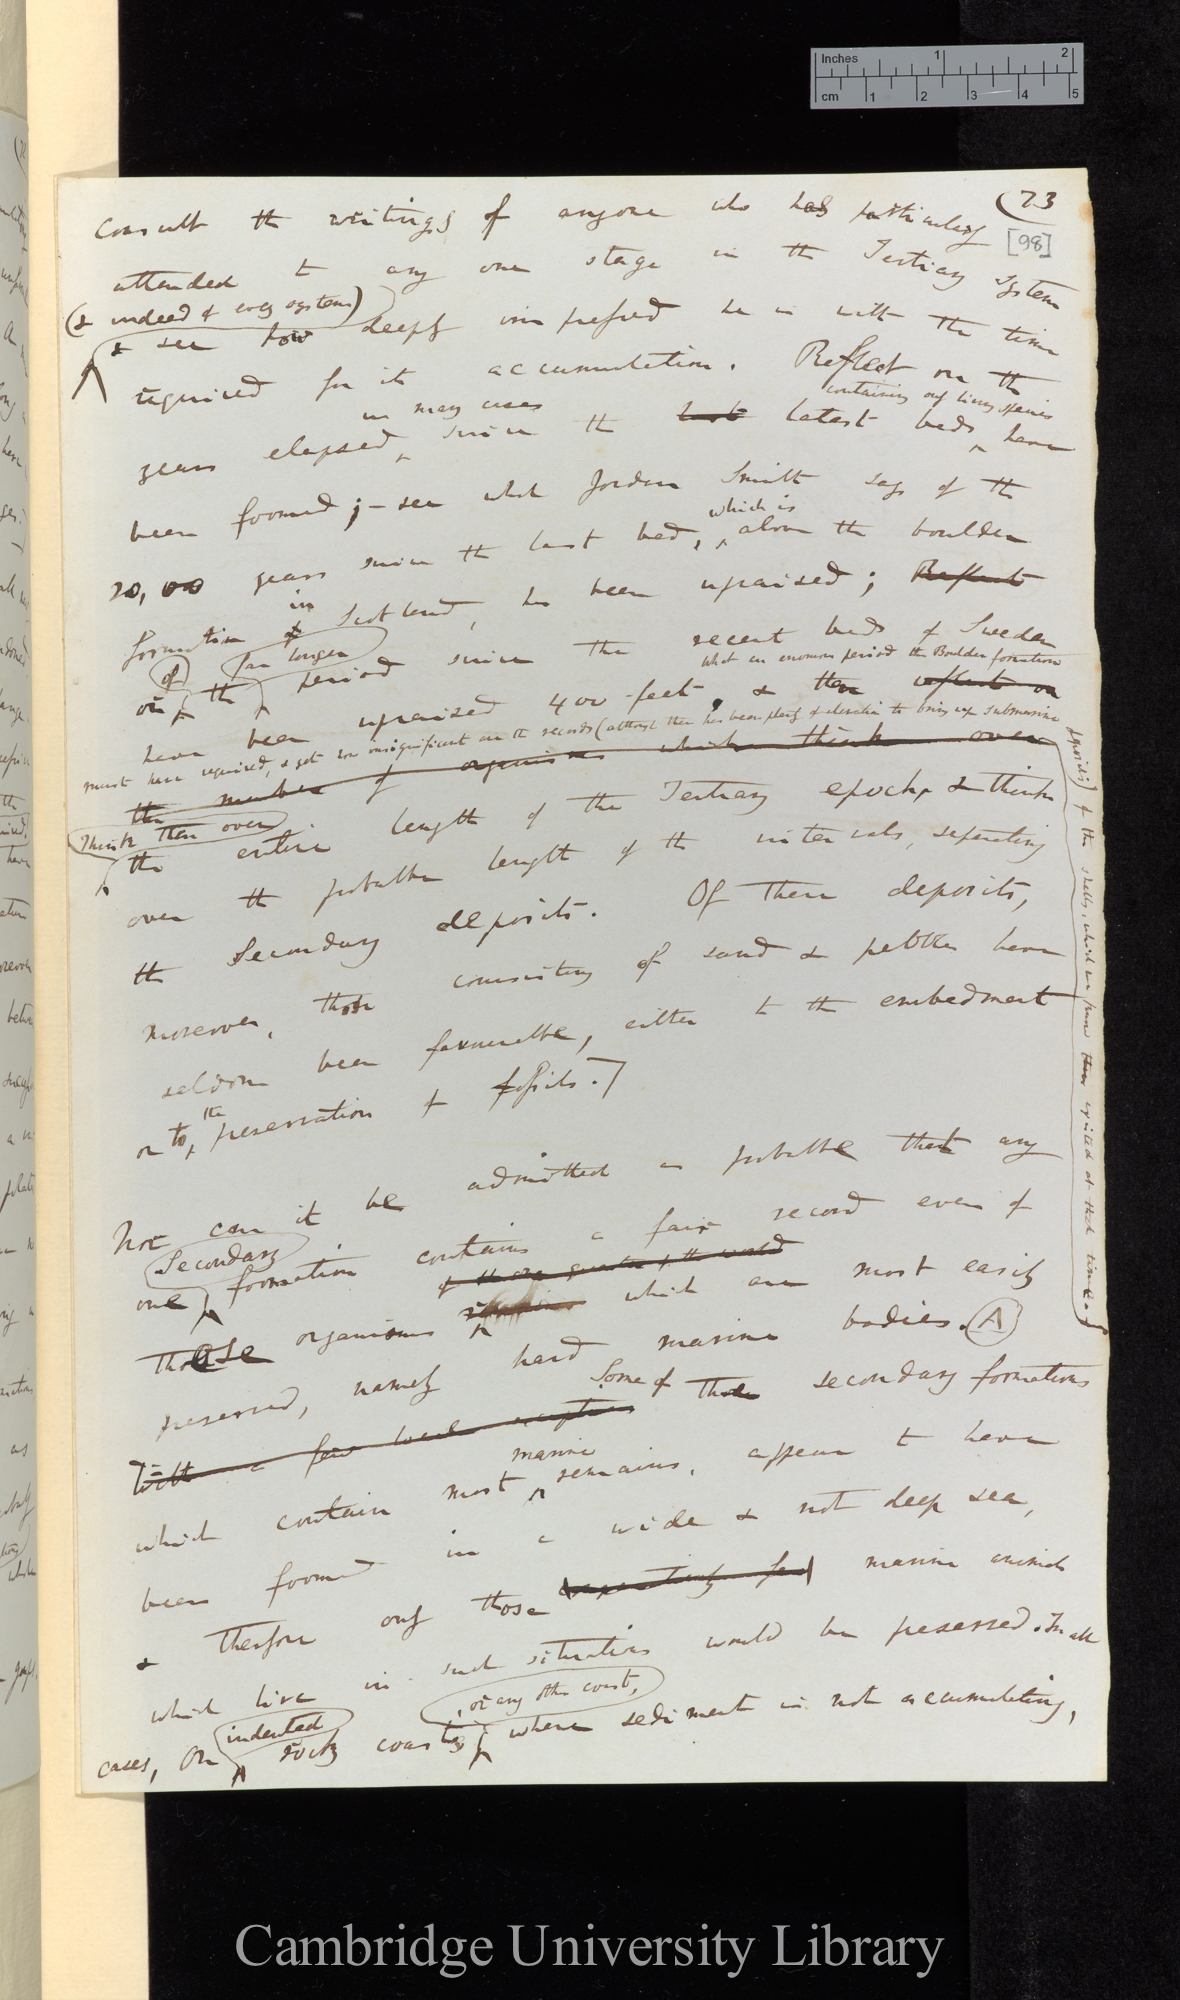 Inches 1 2
cm 1 2 3 4 5
(73
[98]
consult the writings of anyone who has particularly
attended to any one stage in the Tertiary system
(& indeed of every system)
& see how deeply impressed he is with the time
required for its accumulation. Reflect on the
in many cases
containing only living species
years elapsed, since the last latest beds, have
been formed; – see what Jordan Smith says of the
which is
20,000 years since the last bed, above the boulder
in
formation of Scotland, has been upraised; Reflect
of far longer
or the period since the recent beds of Sweden
what an enormous period the Boulder formation
have been upraised 400 feet, & then reflect on
must have required, & yet how insignificant are the records (although there has been plenty of elevation to bring up submarine
deposits) of the shells, which we know then existed at that time.
the number of organisms which think over
Think then over
the entire length of the Tertiary epoch, & think
over the probable length of the intervals, separating
the Secondary deposits. Of these deposits,
moreover, those consisting of sand & pebbles have
seldom been favourable, either to the embedment
the
or to, preservation of fossils.]
Nor can it be admitted as probable that any
Secondary
one formation contains a fair record even of
of the greater the world
those organisms remains which are most easily
preserved, namely hard marine bodies. (A)
Some of
With a few local exceptions those secondary formations
marine
which contain most remains, appear to have
been formed in a wide & not deep sea,
& therefore only those marine animals
which live in such situations would be preserved. In all
indented
, or any other coast,
cases, on rocky coasts, where sediment is not accumulating,
Cambridge University Library